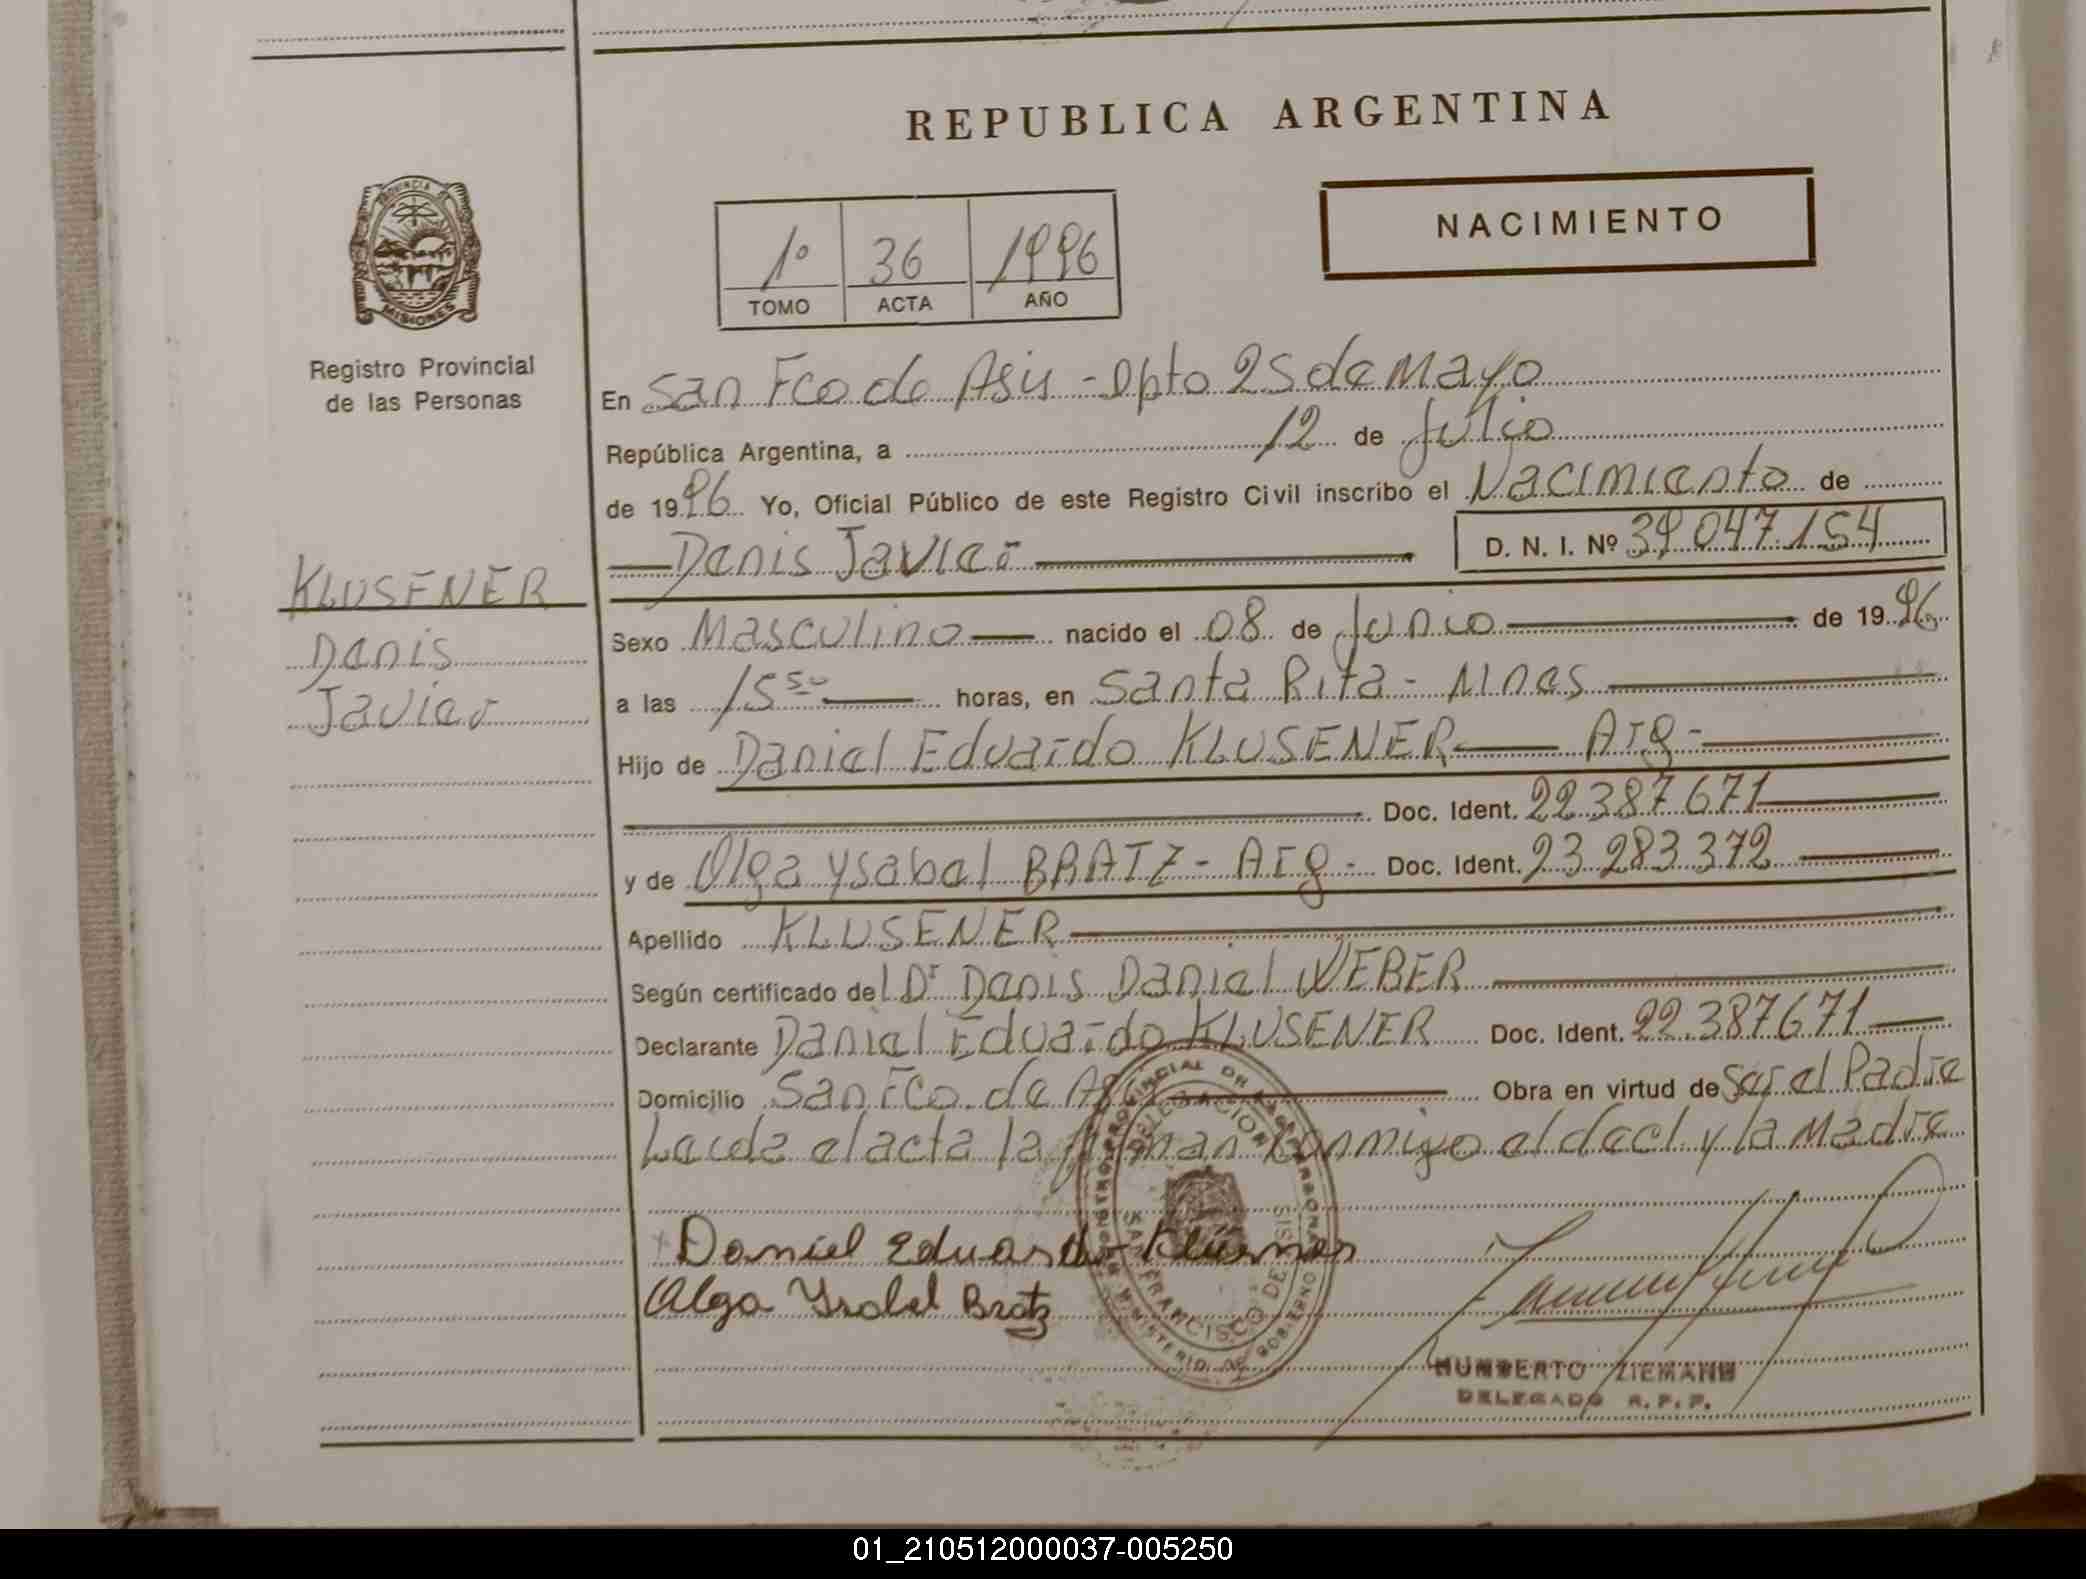 REPUBLICA ARGENTINA
NACIMIENTO
1º 36 1996
TOMO ACTA AÑO
PROVINCIA
MISIONES
Registro Provincial
de las Personas
En San Fco de Asis - Dpto 25 de Mayo
República Argentina, a 12 de Julio
de 1996 Yo, Oficial Público de este Registro Civil inscribo el Nacimiento de
Denis Javier D. N. I. Nº 39.047.154
KLUSENER
Denis
Javier
Sexo Masculino nacido el 08 de Junio de 1996
a las 15 50 horas, en Santa Rita - Mnes
Hijo de Daniel Eduardo KLUSENER Arg -
Doc. Ident. 22.387.671
y de Olga Ysabel BRATZ - Arg - Doc. Ident. 23.283.372
Apellido KLUSENER
Según certificado del Dr Denis Daniel WEBER
Declarante Daniel Eduardo KLUSENER Doc. Ident. 22.387671
Domicilio San Fco. de Asis Obra en virtud de Ser el Padre
Leida el acta la firman conmigo el decl. y la Madre
Daniel Eduardo Klüsener
Olga Ysabel Bratz
DELEGACION
SAN FRANCISCO DE ASIS
MINISTERIO DE GOBIERNO
HUMBERTO ZIEMANN
DELEGADO R. P. P.
01_210512000037-005250